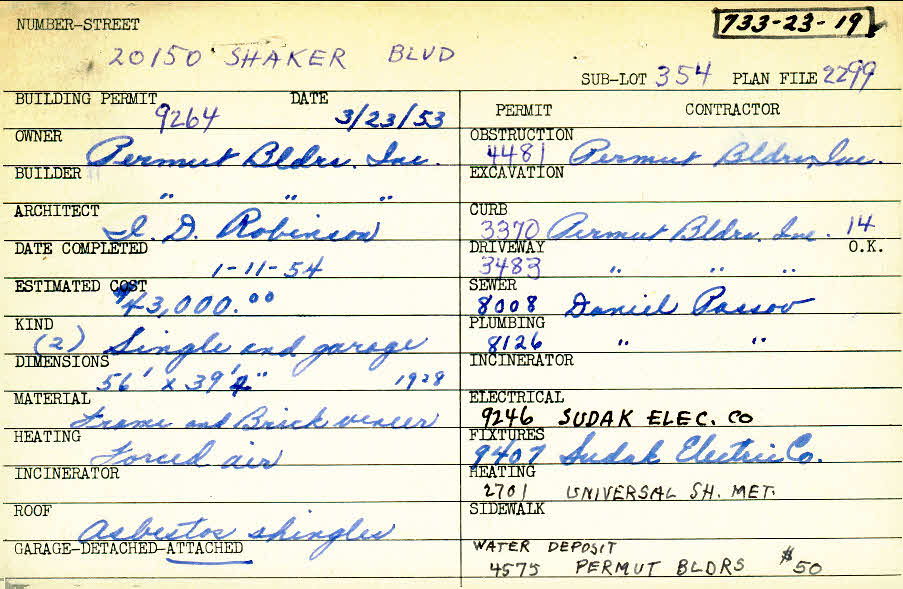 NUMBER-STREET
733-23-19
20150 SHAKER BLVD
SUB-LOT 354 PLAN FILE 2299
BUILDING PERMIT DATE
9264 3/23/53
OWNER
Permut Bldrs. Inc.
BUILDER
" " "
ARCHITECT
I. D. Robinson
DATE COMPLETED
1-11-54
ESTIMATED COST
$43,000.00
KIND
(2) Single and garage
DIMENSIONS
56' x 39'4" 1928
MATERIAL
Frame and Brick veneer
HEATING
Forced air
INCINERATOR
ROOF
Asbestos shingles
GARAGE-DETACHED-ATTACHED
PERMIT CONTRACTOR
OBSTRUCTION
4481 Permut Bldrs, Inc.
EXCAVATION
CURB
3370 Permut Bldrs. Inc. 14
DRIVEWAY O.K.
3483 " " "
SEWER
8008 Daniel Passov
PLUMBING
8126 " "
INCINERATOR
ELECTRICAL
9246 SUDAK ELEC. CO
FIXTURES
9407 Sudak Electric Co.
HEATING
2701 UNIVERSAL SH. MET.
SIDEWALK
WATER DEPOSIT
4575 PERMUT BLDRS $50